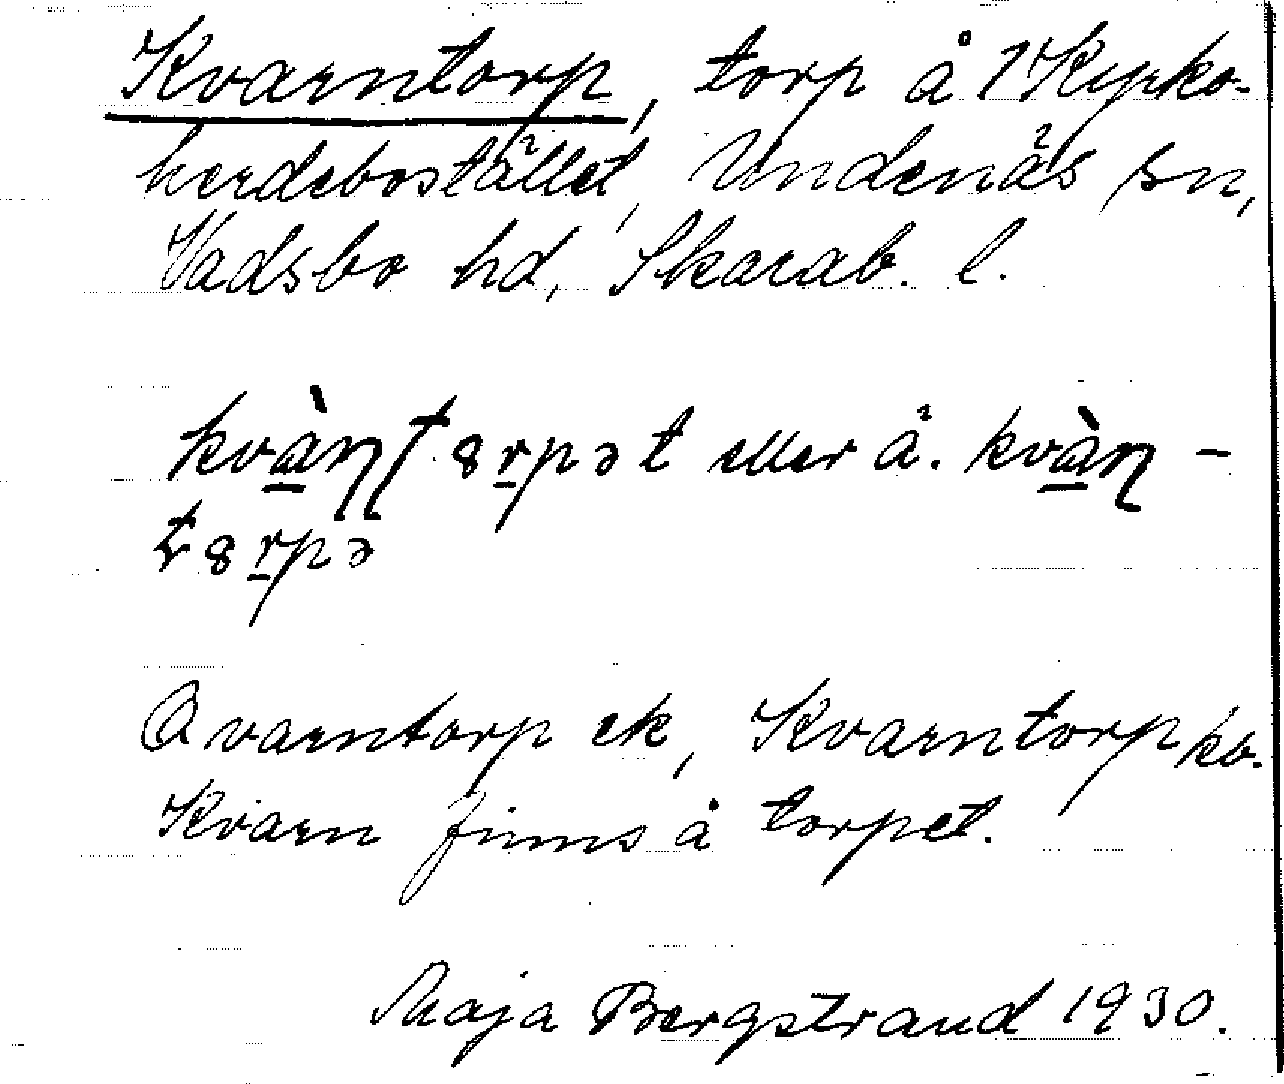 Kvarntorp, torp å 1 Kyrko-
herdebostället, Undenäs sn,
Vadsbo hd, Skarab. l.
kvàɳʈ8rpət eller å. kvàɳ-
ʈ8rpə
Qvarntorp ek, Kvarntorp kb.
Kvarn finns å torpet.
Maja Bergstrand 1930.